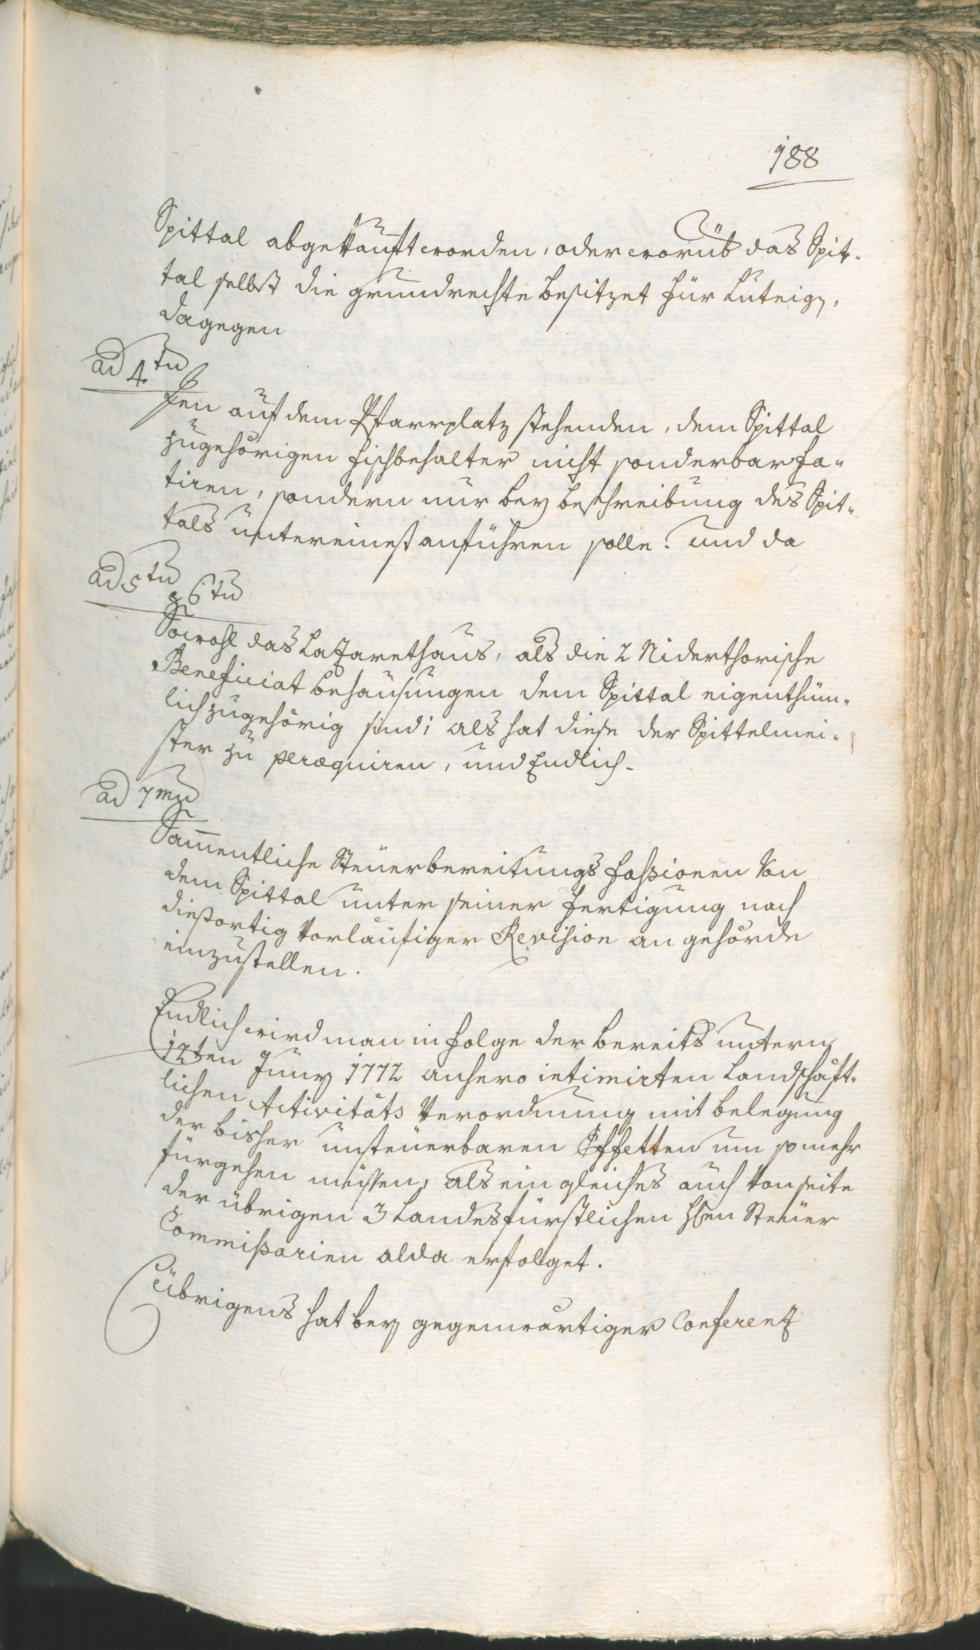 188
Spittal abgekäuft worden, oder worüb das Spit-
tal selbst die grundrechte besitzet für Luteig,
dagegen
ad 4tu
Den auf dem Pfarrplatz stehenden, dem Spittal
zugehörigen fischbehalter nicht sonderbar fa-
tiren, sondern nur bey beschreibung des Spit-
tals untereinest anführen solle. und da
ad 5tu
& 6tu
Sowohl das Lazarethaus, als die 2 Niderthorische
Beneficiat behausungen dem Spittal eigenthüm-
lich zugehörig sind; als hat diese der Spittelmei-
ster zu peraequiren, und Endlich.
ad 7mu
Sam̄entliche Steuerbereitungs fassionen von
dem Spittal unter seiner fertigung nach
diessortig vorläufiger Revision an gehörde
einzustellen.
Endlich wird man in folge der bereits untern
12ten Juny 1772 anhero intimirten Landschäft-
lichen Activitäts Verordnung mit belegung
der bisher unsteuerbaren Effekten um so mehr
fürgehen müssen, als ein gleiches auch von seite
der übrigen 3 Landesfürstlichen Hℓen Steuer
Commissarien alda erfolget.
übrigens hat bey gegenwärtiger Conferenz